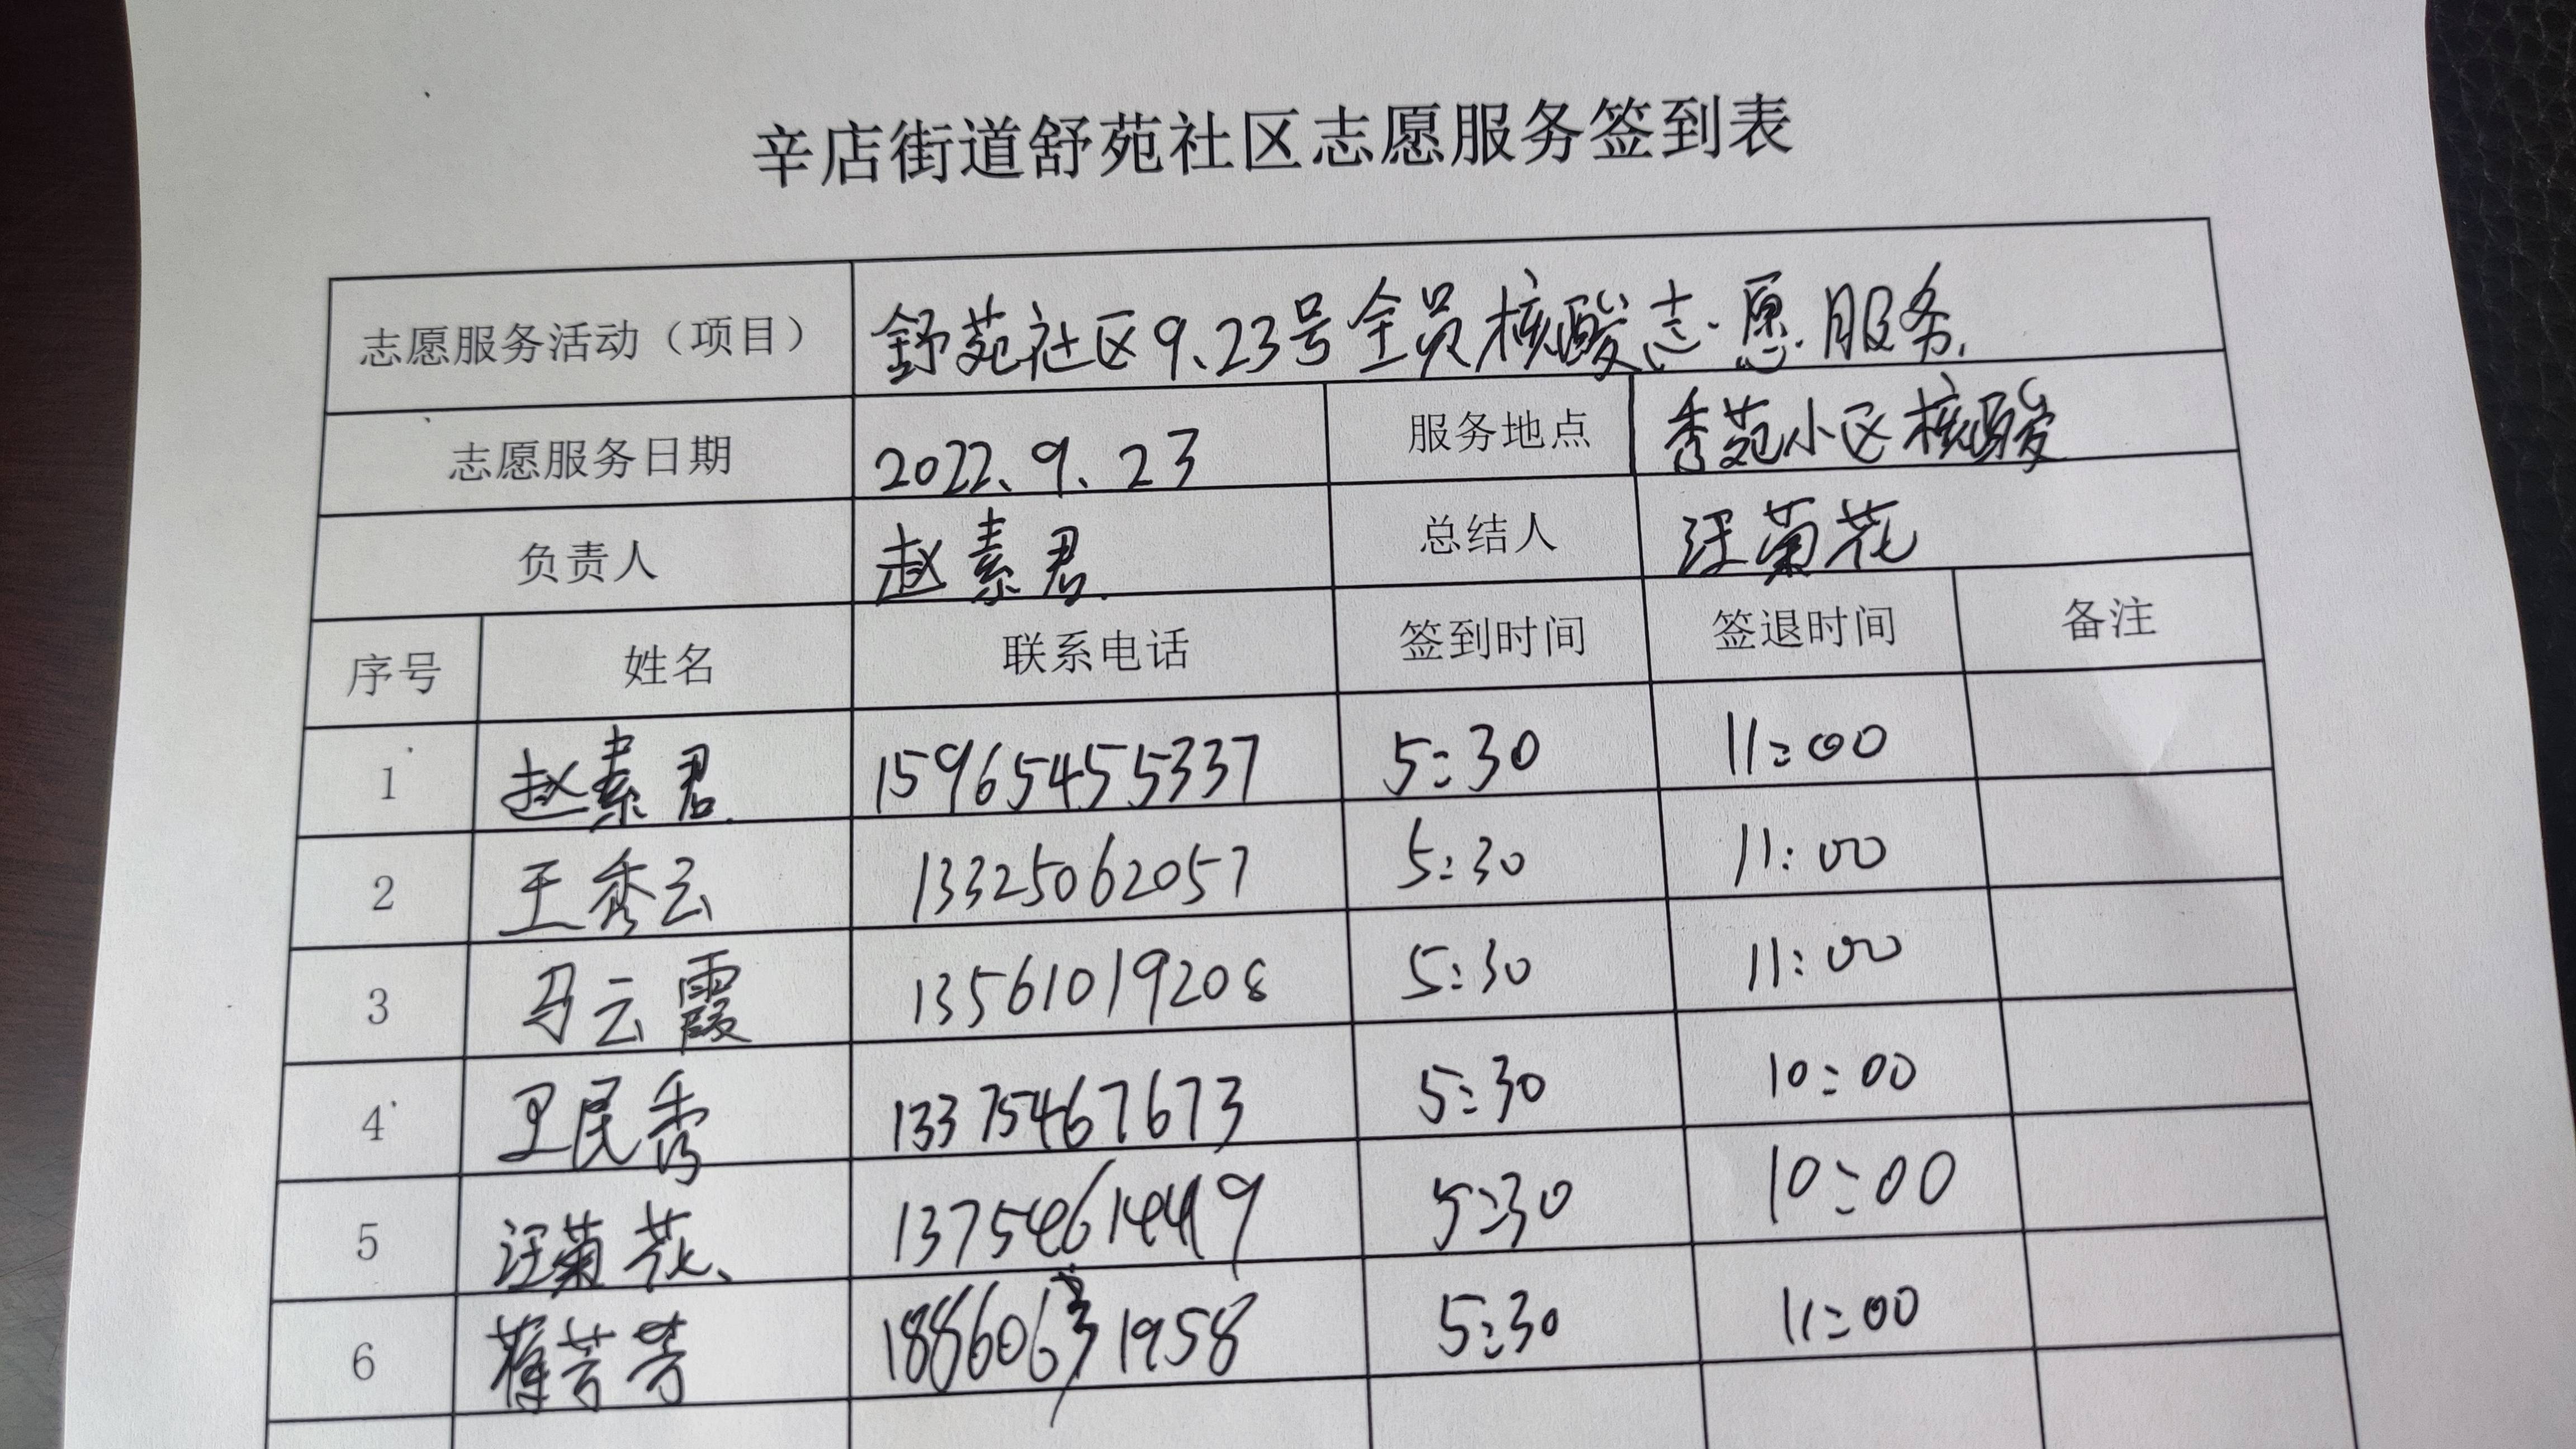 辛店街道舒苑社区志愿服务签到表
志愿服务活动（项目） 舒苑社区9.23号全员核酸志愿服务.
志愿服务日期 2022.9.23 服务地点 秀苑小区核酸
负责人 赵素君. 总结人 汪菊花
序号 姓名 联系电话 签到时间 签退时间 备注
1 赵素君. 15965455337 5:30 11:00
2 王秀云 13325062057 5:30 11:00
3 马云霞 13561019208 5:30 11:00
4 王民秀 13375467673 5:30 10:00
5 汪菊花、 13754614419 5:30 10:00
6 5:30 11:00